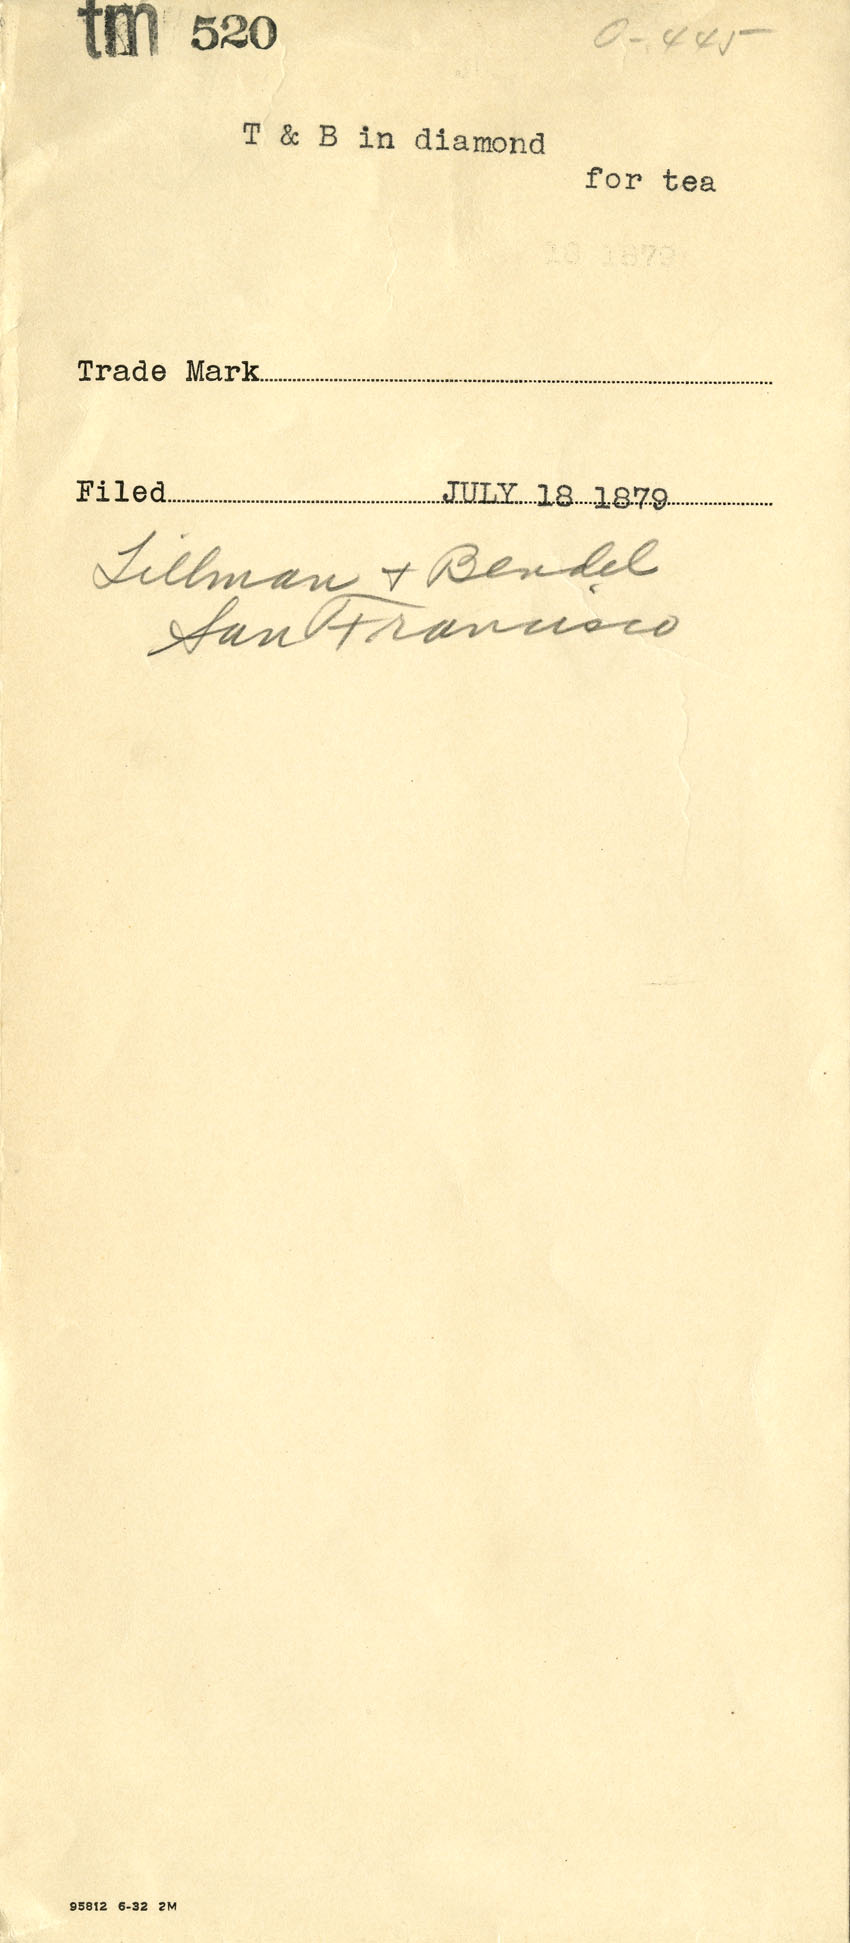 tm 520
O-445
T & B in diamond
for tea
18 1879
Trade Mark
Filed JULY 18 1879
Tillman + Bendel
San Francisco
95812 6-32 2M